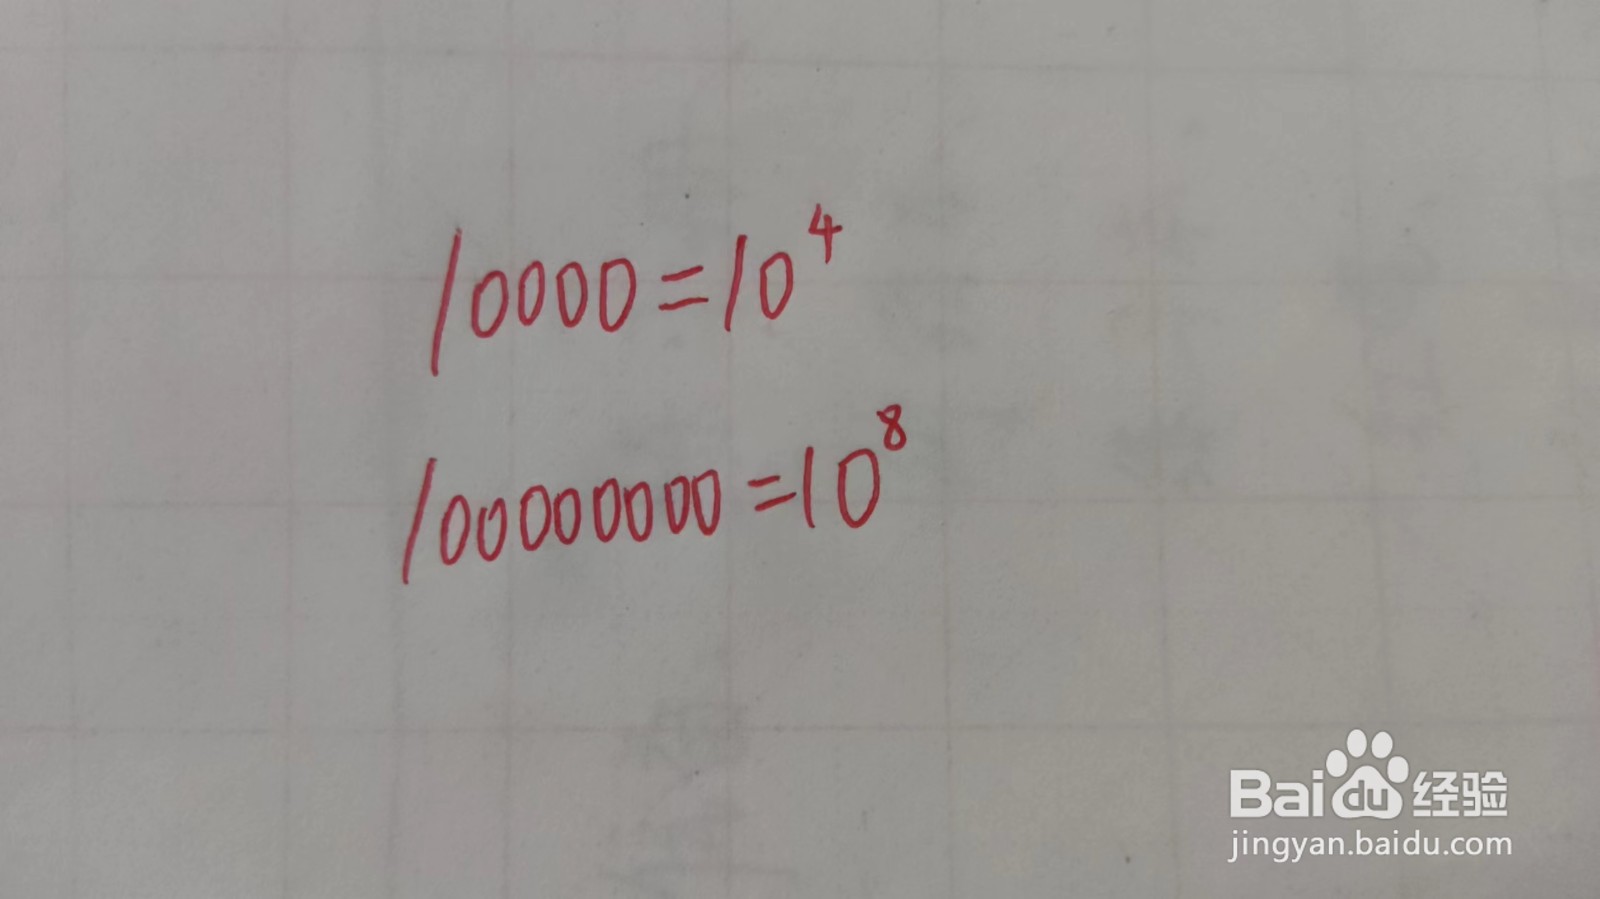 10000=10⁴
100000000=10⁸
Baidu经验
jingyan.baidu.com